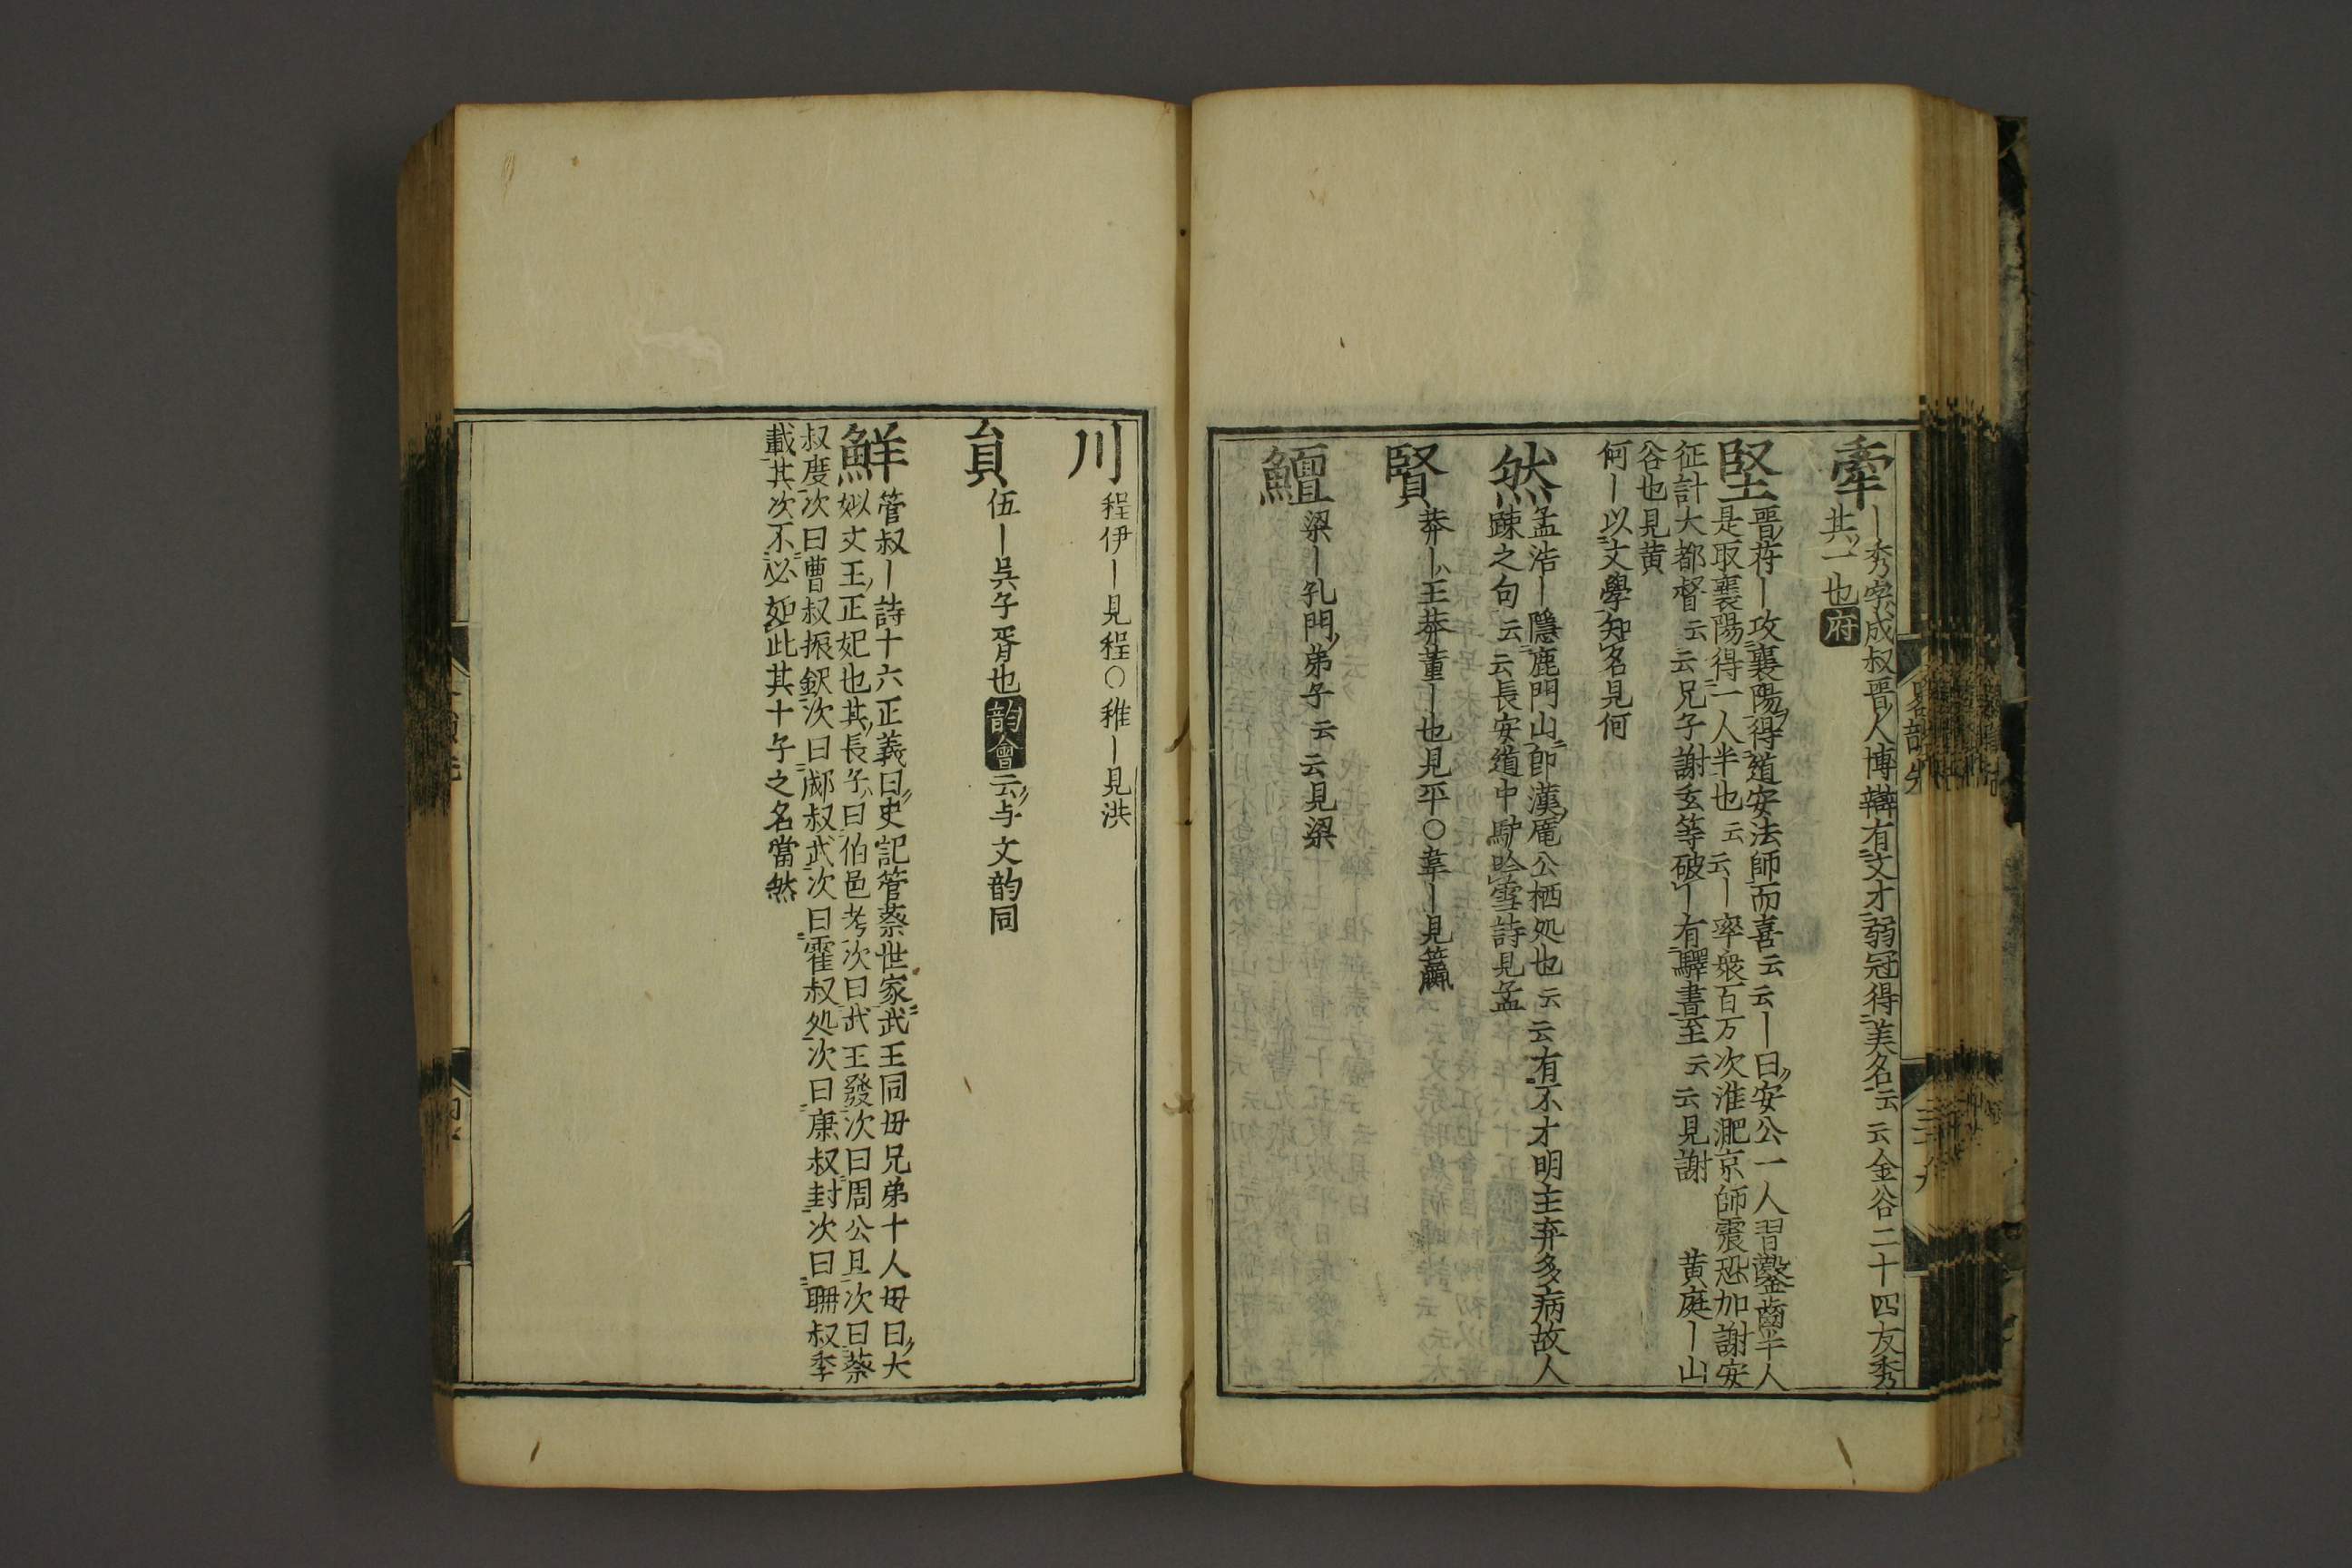 牽｜秀字成叔晋人博辯有文才弱冠得美名云云金谷二十四友秀
其一也府
堅晋苻｜攻襄陽得道安法師而喜云云｜曰安公一人習鑿齒半人
是取襄陽得一人半也云云｜率衆百万次淮淝京師震恐加謝安
征討大都督云云兄子謝玄等破｜有驛書至云云見謝 黄庭｜山
谷也見黄
何｜以文學知名見何
然孟浩｜隱鹿門山即漢龐公栖処也云云有不才明主弃多病故人
踈之句云云長安道中馿吟雪詩見孟
賢莽｜王莽董｜也見平○韋｜見籯
鱣梁｜孔門弟子云云見梁
川程伊｜見程○稚｜見洪
貟伍｜吳子胥也韵會云与文韵同
鮮管叔｜詩十六正義曰史記管蔡世家武王同毋兄弟十人毋曰大
姒文王正妃也其長子曰伯邑考次曰武王發次曰周公旦次曰蔡
叔度次曰曹叔振鈬次曰郕叔武次曰霍叔処次曰康叔封次曰聃叔季
載其次不必如此其十子之名當然